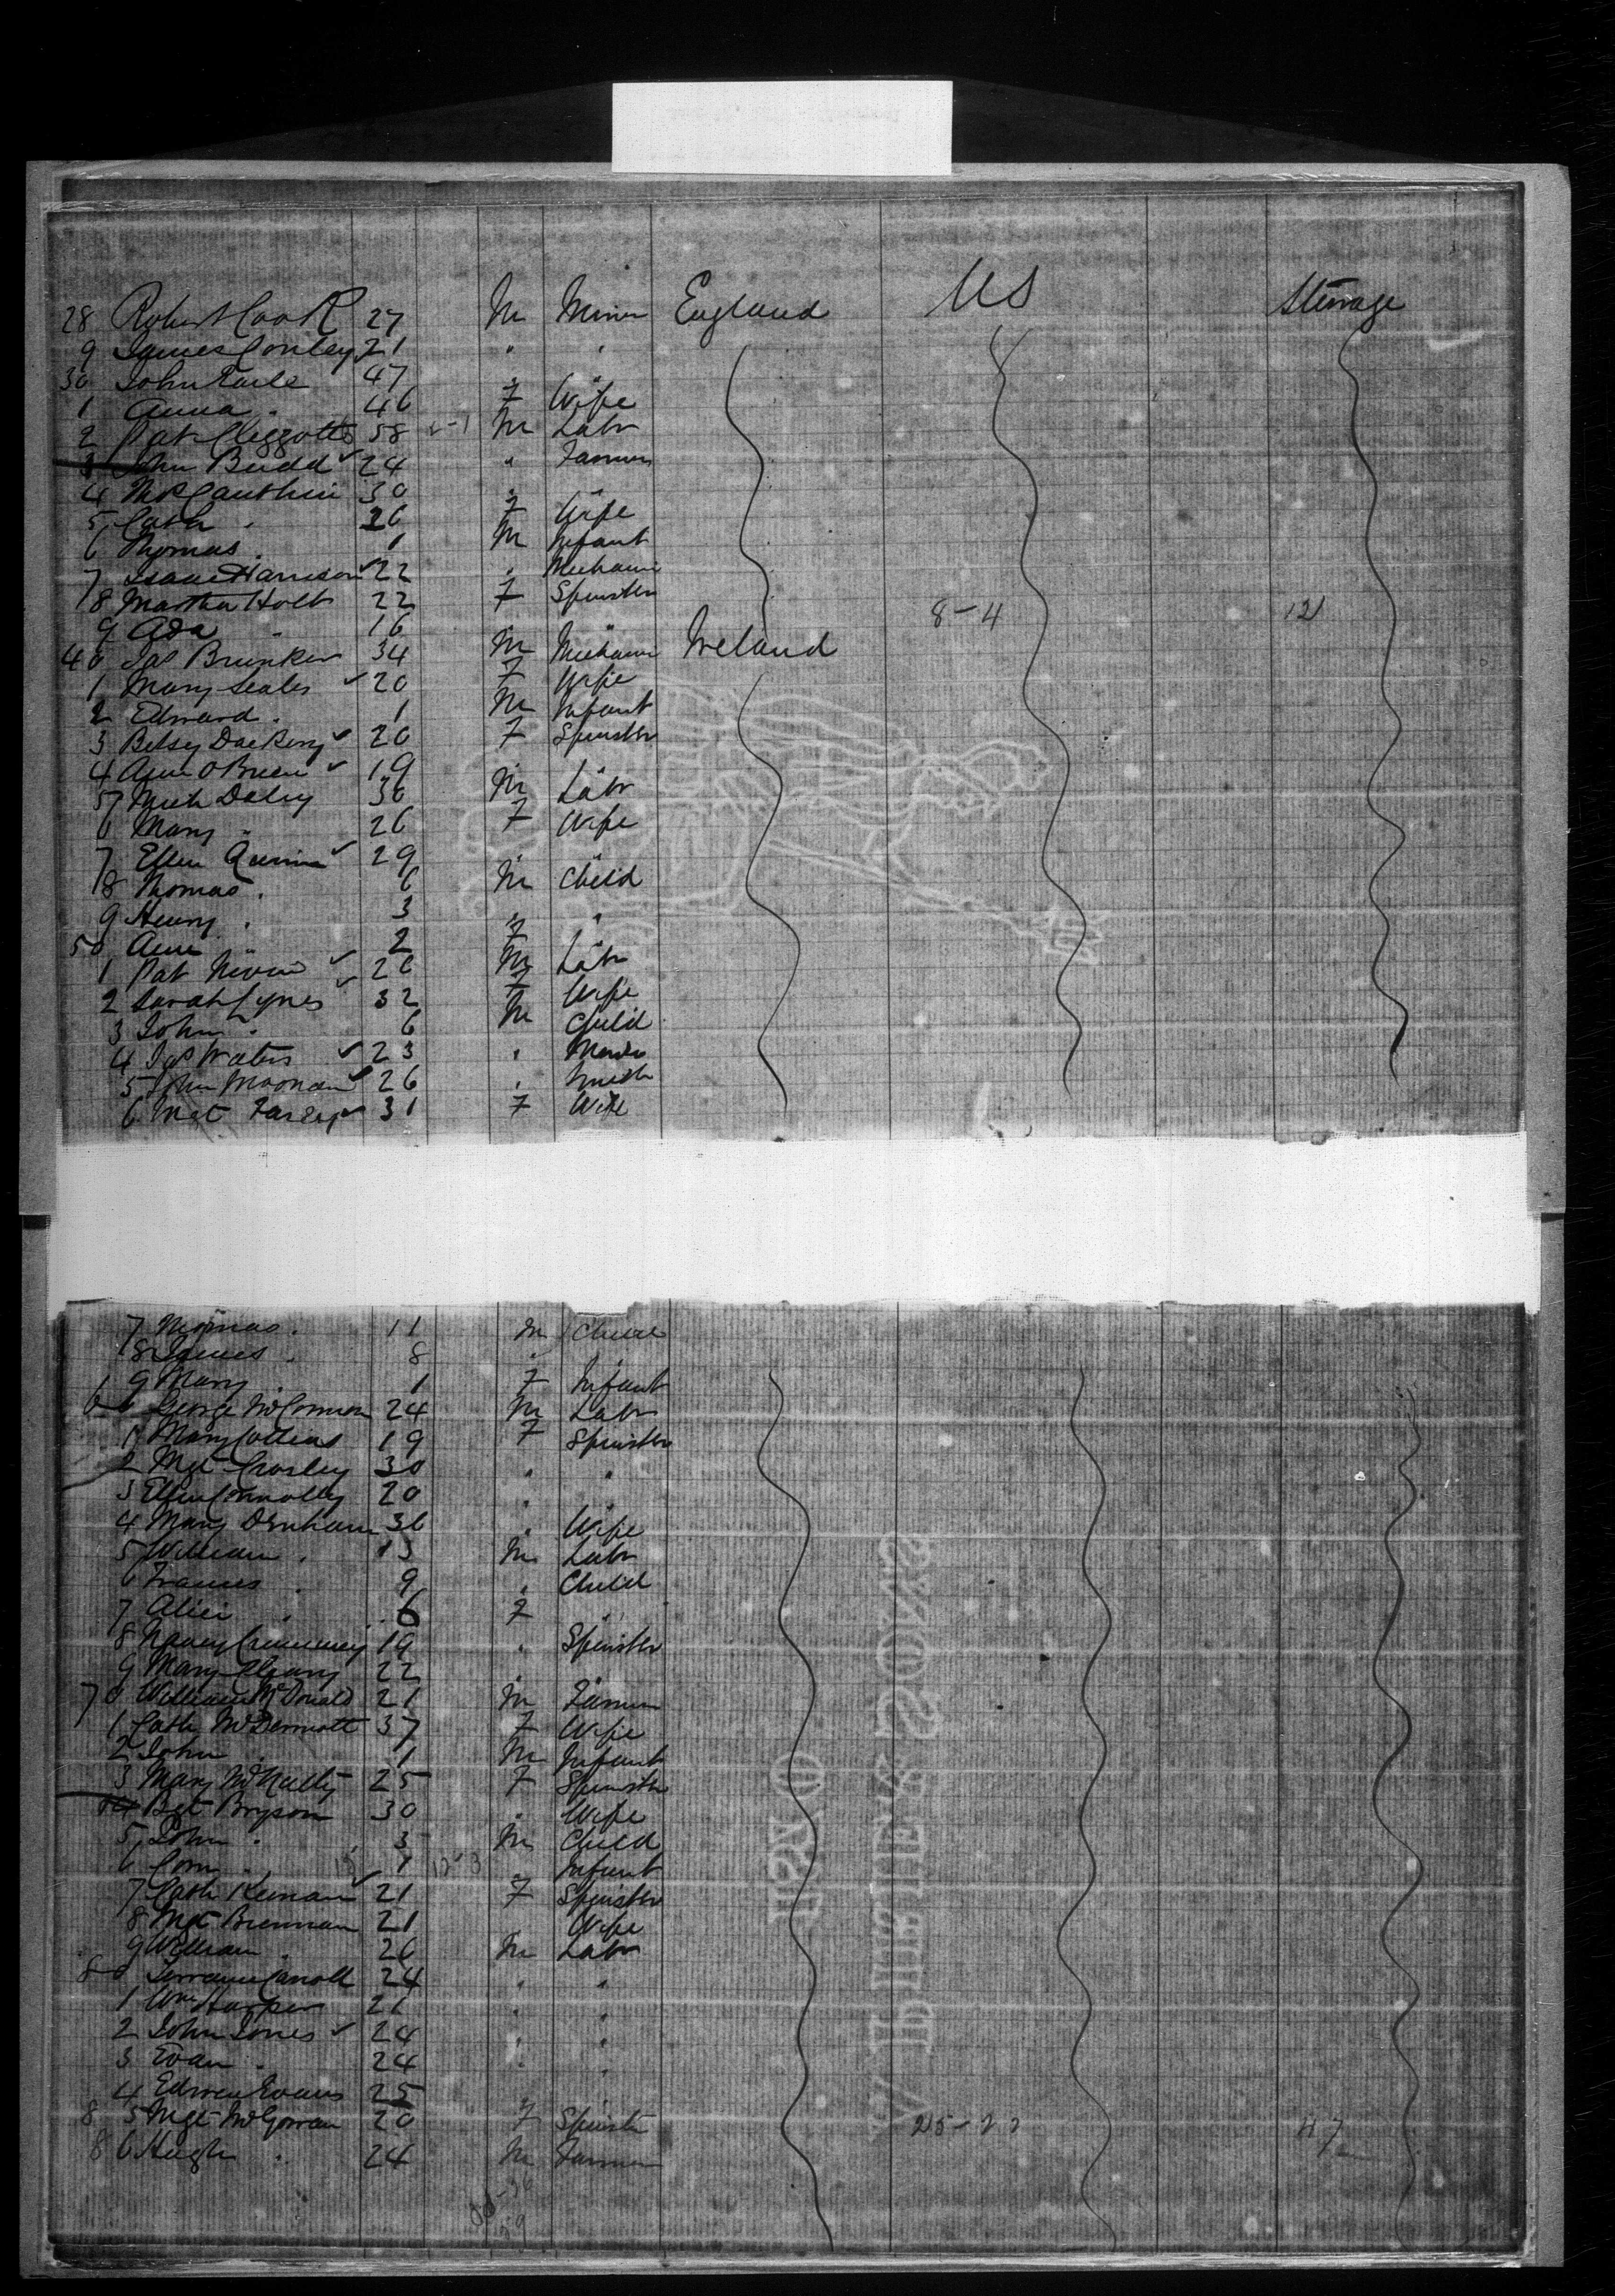 28 Robert Cook 27 M Miner England US Steerage
9 James Conley 21 " "
30 John Earle 47 " "
1 Anna " 46 F Wife
2 Pat 58 M Labr
3 John Budd ✓ 24 " Farmer
4 30 " "
5 Cath " 26 F Wife
6 Thomas " 1 M Infant
7 Isaac Harrison ✓ 22 " Mechanic
8 Martha Holt 22 F Spinster 8-4 12
9 Ada " 16 " "
40 Jas Brunker 34 M Mechanic Ireland
1 Mary Seales ✓ 20 F Wife
2 Edward " 1 M Infant
3 Betsy ✓ 20 F Spinster
4 Ann O'Brien ✓ 19 " "
5 Mich Daley 30 M Labr
6 Mary " 26 F Wife
7 Ellen ✓ 29 " "
8 Thomas " 6 M Child
9 Henry " 3 " "
50 Ann " 2 F "
1 Pat ✓ 26 M Labr
2 Sarah Lynes ✓ 32 F Wife
3 John " 6 M Child
4 Jas Waters ✓ 23 "
5 John Moonan ✓ 26 "
6 Mgt Farley ✓ 31 F Wife
7 Thomas " 11 M Child
8 James " 8 " "
9 Mary " 1 F Infant
60 George 24 M Labr
1 Mary Collins 19 F Spinster
2 Mgt Crosley 30 " "
3 Ellen Connolly 20 " "
4 Mary 36 " Wife
5 William " 13 M Labr
6 Frances " 9 " Child
7 Alice " 6 F "
8 Nancy 19 " Spinster
9 Mary 22 " "
70 William McDonald 21 M Farmer
1 Cath McDermott 37 F Wife
2 John " 1 M Infant
3 Mary McNally 25 F Spinster
4 Bgt Bryson 30 " Wife
5 John " 3 M Child
6 Corn " 1 Infant
7 Cath Keenan ✓ 21 F Spinster
8 Mgt Brennan 21 Wife
9 William " 26 M Labr
80 Carroll 24 " "
1 Wm Harper 26 " "
2 John Jones ✓ 24 " "
3 Evan " 24 " "
4 Edwin Evans 25 " "
8 5 Mgt McGowan 20 F Spinstr 47
8 6 Hugh " 24 M Farmer